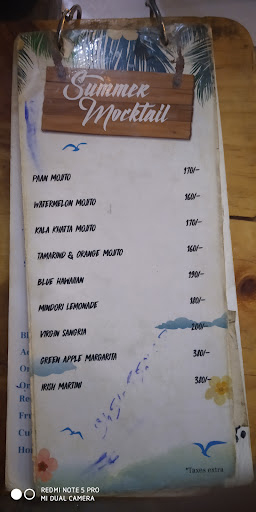 Summer
Mocktail
PAAN MOJITO 170/-
WATERMELON MOJITO 160/-
KALA KHATTA MOJITO 170/-
TAMARIND & ORANGE MOJITO 160/-
BLUE HAWAIIAN 190/-
MINDORI LEMONADE 180/-
VIRGIN SANGRIA 200/-
GREEN APPLE MARGARITA 380/-
IRISH MARTINI 380/-
*Taxes extra
REDMI NOTE 5 PRO
MI DUAL CAMERA